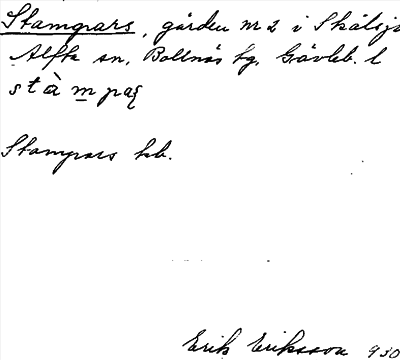 Stampars, gården nr 2 i Skålsjö
Alfta sn, Bollnäs tg, Gävleb. l
stàmpaʂ
Stampars kb.
Erik Eriksson 930